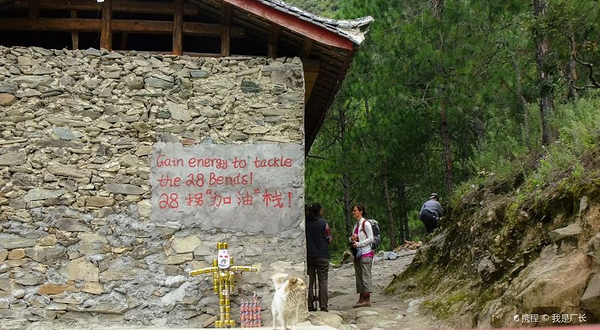 Gain energy to tackle
the 28 Bends!
28拐“加油”栈!
携程 © 我是厂长